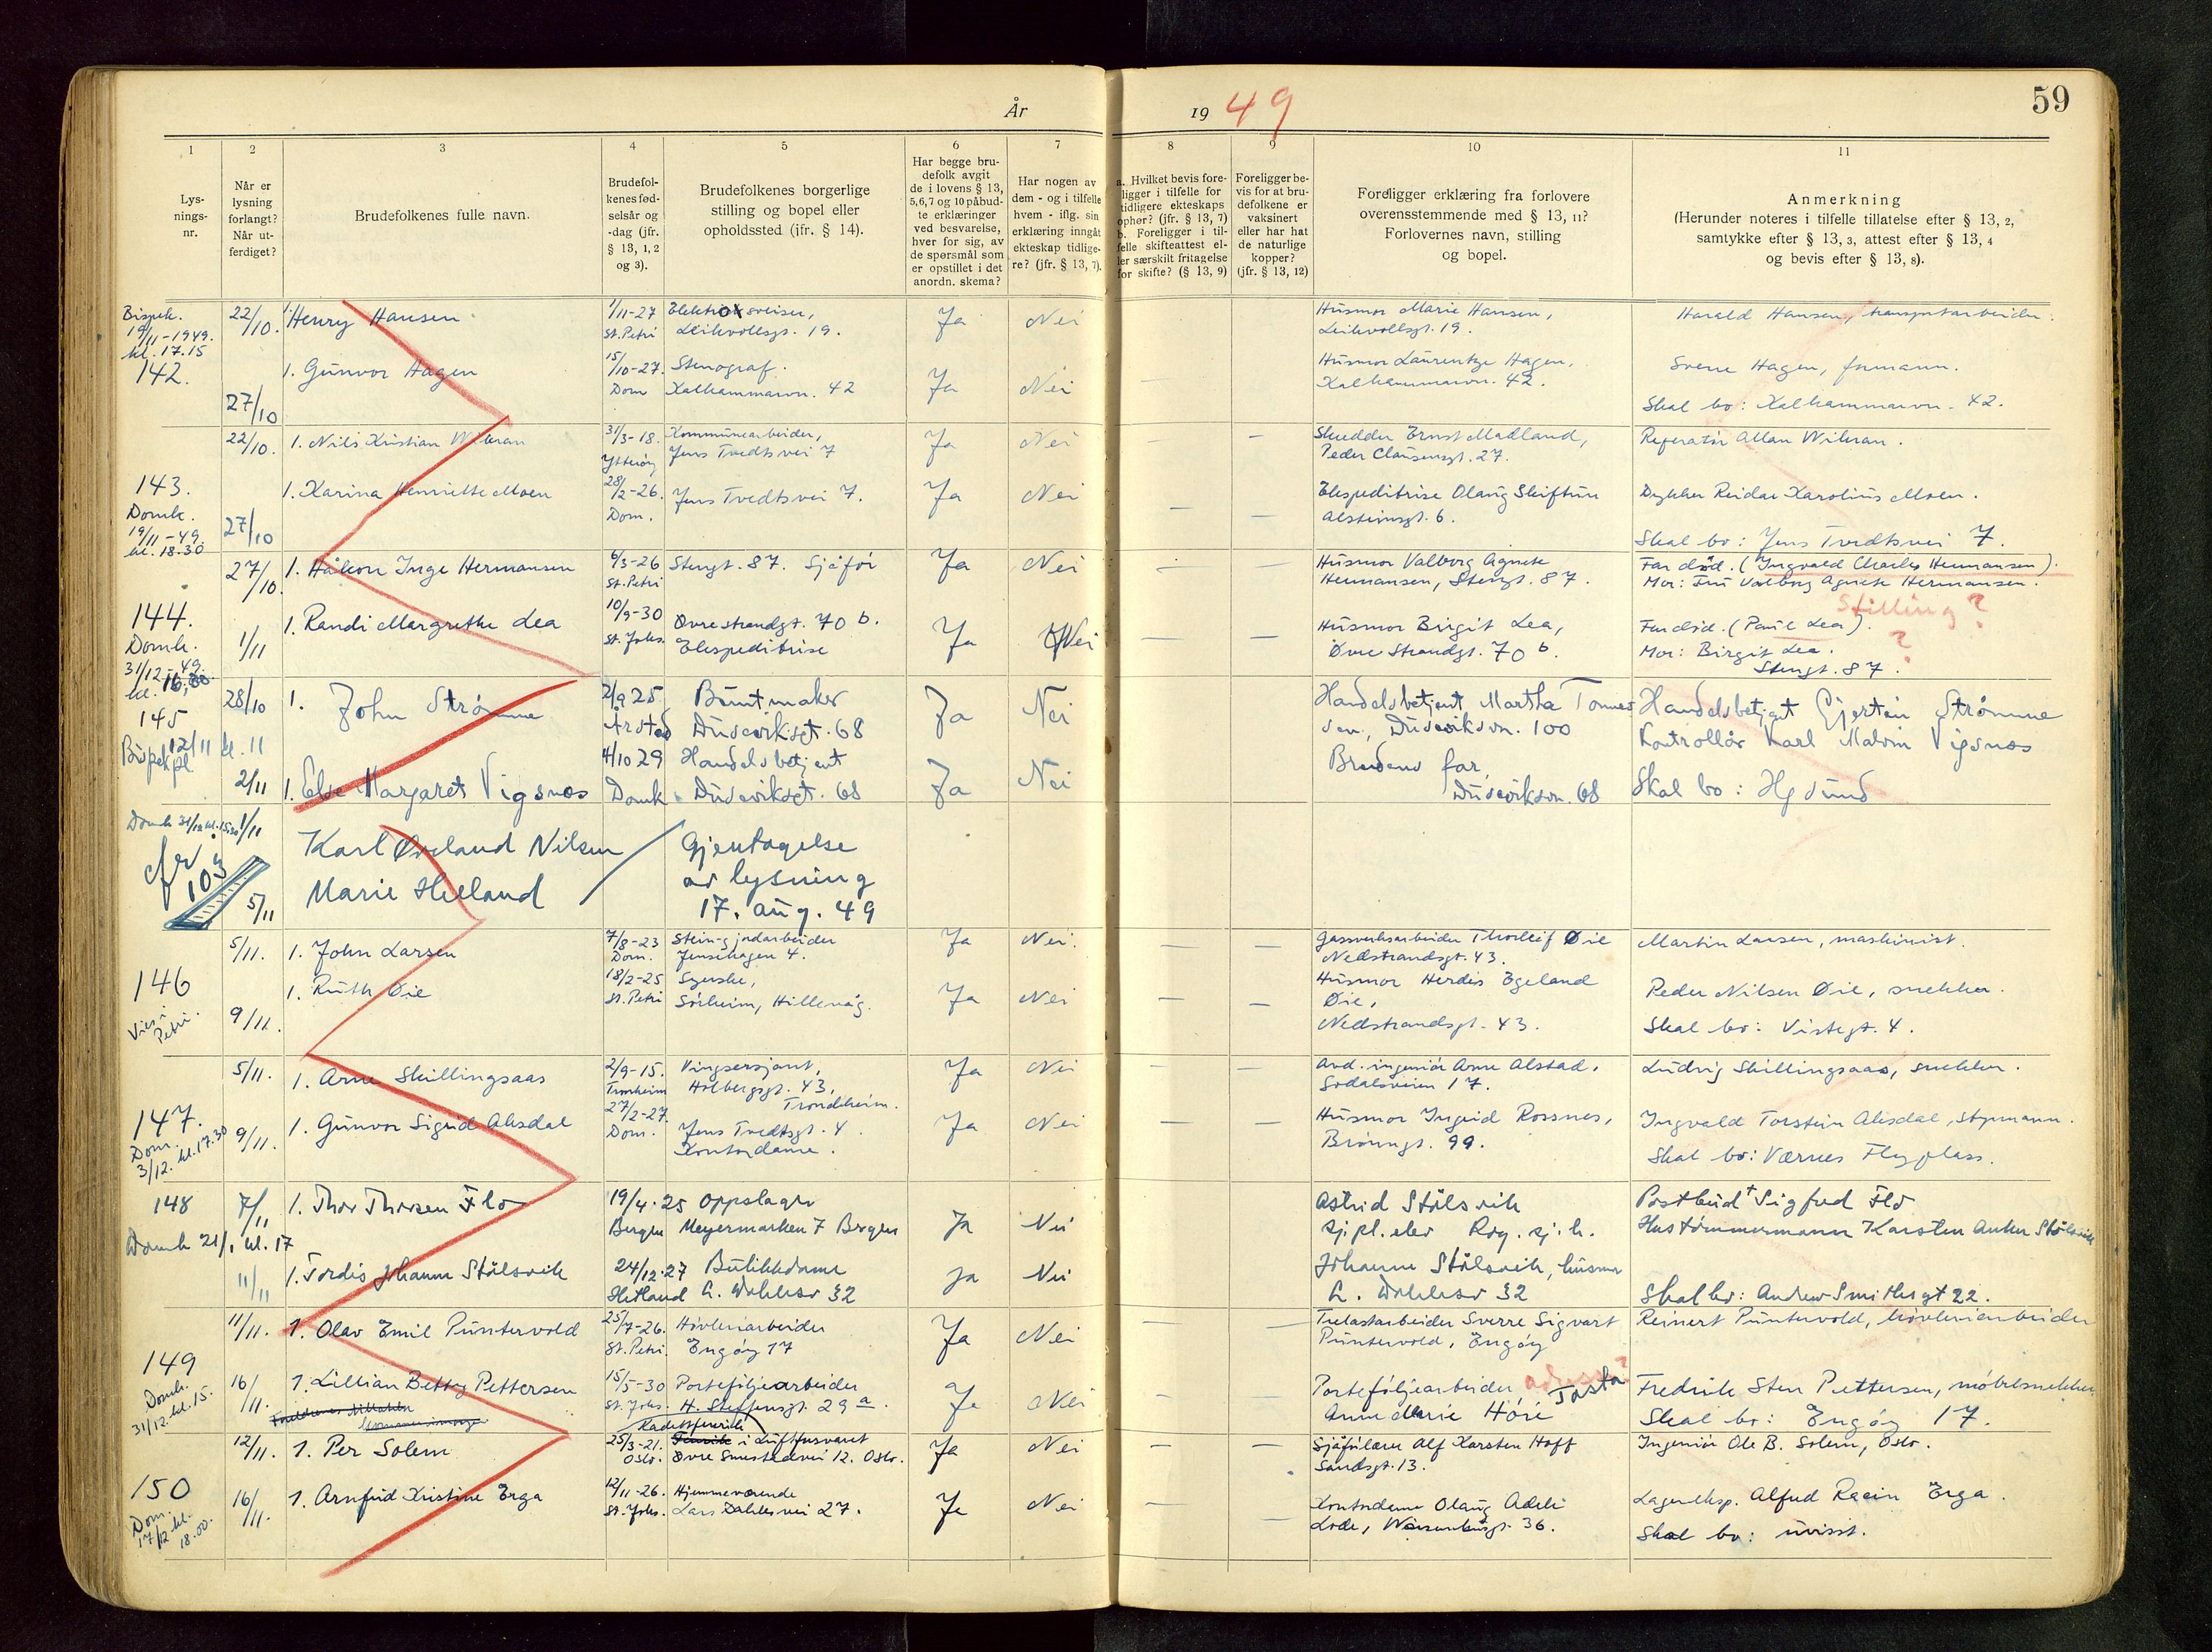 År 19 49
59
1
Lys-
nings-
nr.
2
Når er
lysning
forlangt?
Når ut-
ferdiget?
3
Brudefolkenes fulle navn.
4
Brudefol-
kenes fød-
selsår og
-dag (jfr.
§ 13, 1, 2
og 3).
5
Brudefolkenes borgerlige
stilling og bopel eller
opholdssted (jfr. § 14).
6
Har begge bru-
defolk avgit
de i lovens § 13,
5, 6, 7 og 10 påbud-
te erklæringer
ved besvarelse,
hver for sig, av
de spørsmål som
er opstillet i det
anordn. skema?
7
Har nogen av
dem - og i tilfelle
hvem - iflg. sin
erklæring inngåt
ekteskap tidlige-
re? (jfr. § 13, 7).
8
a. Hvilket bevis fore-
ligger i tilfelle for
tidligere ekteskaps
ophør? (jfr. § 13, 7)
b. Foreligger i til-
felle skifteattest el-
ler særskilt fritagelse
for skifte? (§ 13, 9)
9
Foreligger be-
vis for at bru-
defolkene er
vaksinert
eller har hat
de naturlige
kopper?
(jfr. § 13, 12)
10
Foreligger erklæring fra forlovere
overensstemmende med § 13, 11?
Forlovernes navn, stilling
og bopel.
11
Anmerkning
(Herunder noteres i tilfelle tillatelse efter § 13, 2,
samtykke efter § 13, 3, attest efter § 13, 4
og bevis efter § 13, 8).
Bispek.
19/11-1949.
kl. 17.15
142.
22/10. 1. Henry Hansen 1/11-27 St. Petri sveiser, 19. Ja Nei
Husmor Marie Hansen,
19.
Harald Hansen, transportarbeider.
27/10 1. Gunvor Hagen 15/10-27. Dom Stenograf. Kalhammarvn. 42 Ja Nei
Husmor Laurentze Hagen,
Kalhammarvn. 42.
Sverre Hagen, formann.
Skal bo: Kalhammarvn. 42.
143.
Domk.
19/11-49.
kl. 18.30
22/10. 1. Nils Kristian 31/3-18. Ytterøy Kommunearbeider,
Jens Tvedts vei 7 Ja Nei
Skredder Ernst Madland,
Peder Clausensgt. 27.
Allan
27/10 1. Karina Henriette Moen 28/2-26. Dom. Jens Tvedts vei 7. Ja Nei
Ekspeditrise Olaug
6.
Dykker Reidar Karolius Moen.
Skal bo: Jens Tvedts vei 7.
144.
Domk.
31/12-49.
kl. 16,
27/10. 1. Håkon Inge Hermansen 6/3-26 St. Petri Stengt. 87. Sjåfør Ja Nei
Husmor Valborg Agnete
Hermansen, Stengt. 87.
Far død. (Ingvald Charles Hermansen).
Mor: Fru Valborg Agnete Hermansen.
Stilling?
1/11 1. Randi Margrethe Lea 10/9-30 St. Johs. Øvre Strandgt. 70 b.
Ekspeditrise Ja Nei
Husmor Birgit Lea,
Øvre Strandgt. 70 b.
Far død. (Paul Lea).
?
Mor: Birgit Lea.
Stengt. 87.
145
12/11 kl. 11
28/10 1. John Strømme 2/9 25 Årstad Buntmaker
Dusavikgt. 68 Ja Nei
Handelsbetjent Martha Tønnes-
sen, Dusavikvn. 100
Handelsbetjent Strømme
2/11 1. Else Margaret Vigsnæs 4/10 29 Domk. Handelsbetjent
Dusavikgt. 68 Ja Nei
Brudens far,
Dusavikvn. 68
Kontrollør Karl Malvin Vigsnæs
Skal bo:
Domk 31/12 kl. 15.30
cfr 103
1/11 Karl Øveland Nilsen
5/11 Marie Helland
Gjentagelse
av lysning
17. aug. 49
146
Vies i
Petri.
5/11. 1. John Larsen 7/8-23 Dom. Stein- og jordarbeider
Jenschagen 4. Ja Nei.
Gassverksarbeider Thorleif Øie
Nedstrandsgt. 43.
Martin Larsen, maskinist.
9/11. 1. Ruth Øie 18/2-25 St. Petri Syerske,
Sørheim, Hillevåg. Ja Nei
Husmor Herdis Egeland
Øie,
Nedstrandsgt. 43.
Peder Nilsen Øie, snekker.
Skal bo: Vistegt. 4.
147.
Dom.
3/12. kl. 17.30
5/11. 1. Arne Skillingsaas 2/9-15. Trondheim Vingsersjant,
Holbergsgt. 43,
Trondheim. Ja Nei
Avd. ingeniør Arne Alstad,
Sodalsveien 17.
Ludvig Skillingsaas, snekker.
9/11. 1. Gunvor Sigrid Alsdal 27/2-27. Dom. Jens Tvedtsgt. 4
Kontordame. Ja Nei
Husmor Ingrid Rossnes,
99.
Ingvald Torstein Alsdal, styrmann.
Skal bo: Værnes Flyplass.
148
Domk 21/1 kl. 17
7/11 1. Thor Thorsen Flo 19/4.25 Bergen Oppslager
Meyermarken 7 Bergen Ja Nei
Astrid Stølsvik
sj.pl. elev Rog. sj.h.
Postbud Sigfred Flo
11/11 1. Tordis Johanne Stølsvik 24/12.27 Hetland Butikkdame
32 ja Nei
Johanne Stølsvik, husmor
32
Hustømmermann Karsten Anker Stølsvik
Skal bo: Andrew Smithsgt 22.
149
Domk.
31/12. kl. 15.
11/11. 1. Olav Emil Puntervold 25/7-26. St. Petri. Høvleriarbeider
Engøy 17 Ja Nei
Trelastarbeider Sverre Sigvart
Puntervold, Engøy
Reinert Puntervold, høvleriarbeider
16/11. 1. Lillian Betty Pettersen 15/5-30 St. Johs. Porteføljearbeider
H. Steffensgt. 29 a. Ja Nei
Porteføljearbeider, adresse?
Anne Marie Tasta
Fredrik Sten Pettersen, møbelsnekker
Skal bo: Engøy 17.
150
Dom.
17/12 kl.
18.00.
12/11. 1. Per Solem 25/3-21. Oslo. Kadettfenrik
Fenrik i Luftforsvaret
Øvre Smestadvei 12. Oslo. Ja Nei
Sjåførlærer Alf Karsten Hoff
Sandsgt. 13.
Ingeniør Ole B. Solem, Oslo.
16/11. 1. Arnfrid Kristine Erga 12/11-26. St. Johs. Hjemmeværende
Lars Dahles vei 27. Ja Nei
Kontordame Olaug Adeli
Lode, 36.
Lagereksp. Alfred Erga.
Skal bo: uvisst.